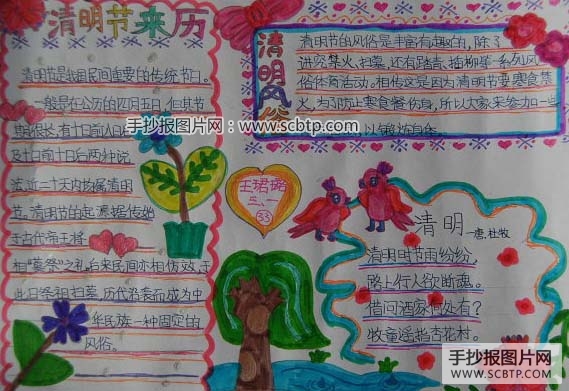 清明节来历
清明节是我国民间重要的传统节日。
一般是在公历的四月五日,但其节
期很长,有十日前八日后
及十日前十日后两种说
法,近二十天内均属清明
节。清明节的起源,据传始
于古代帝王将
相"墓祭"之礼,后来民间亦相仿效,于
此日祭祖扫墓,历代沿袭而成为中
华民族一种固定的
风俗。
手抄报图片网:www.scbtp.com
清明风俗
清明节的风俗是丰富有趣的,除了
讲究禁火、扫墓,还有踏青、插柳等一系列风
俗体育活动。相传这是因为清明节要寒食禁
火,为了防止寒食餐伤身,所以大家来参加一些
以锻炼身体。
三、一
33
清明
唐.杜牧
清明时节雨纷纷,
路上行人欲断魂。
借问酒家何处有?
牧童遥指杏花村。
手抄报图片网
WWW.SCBTP.COM